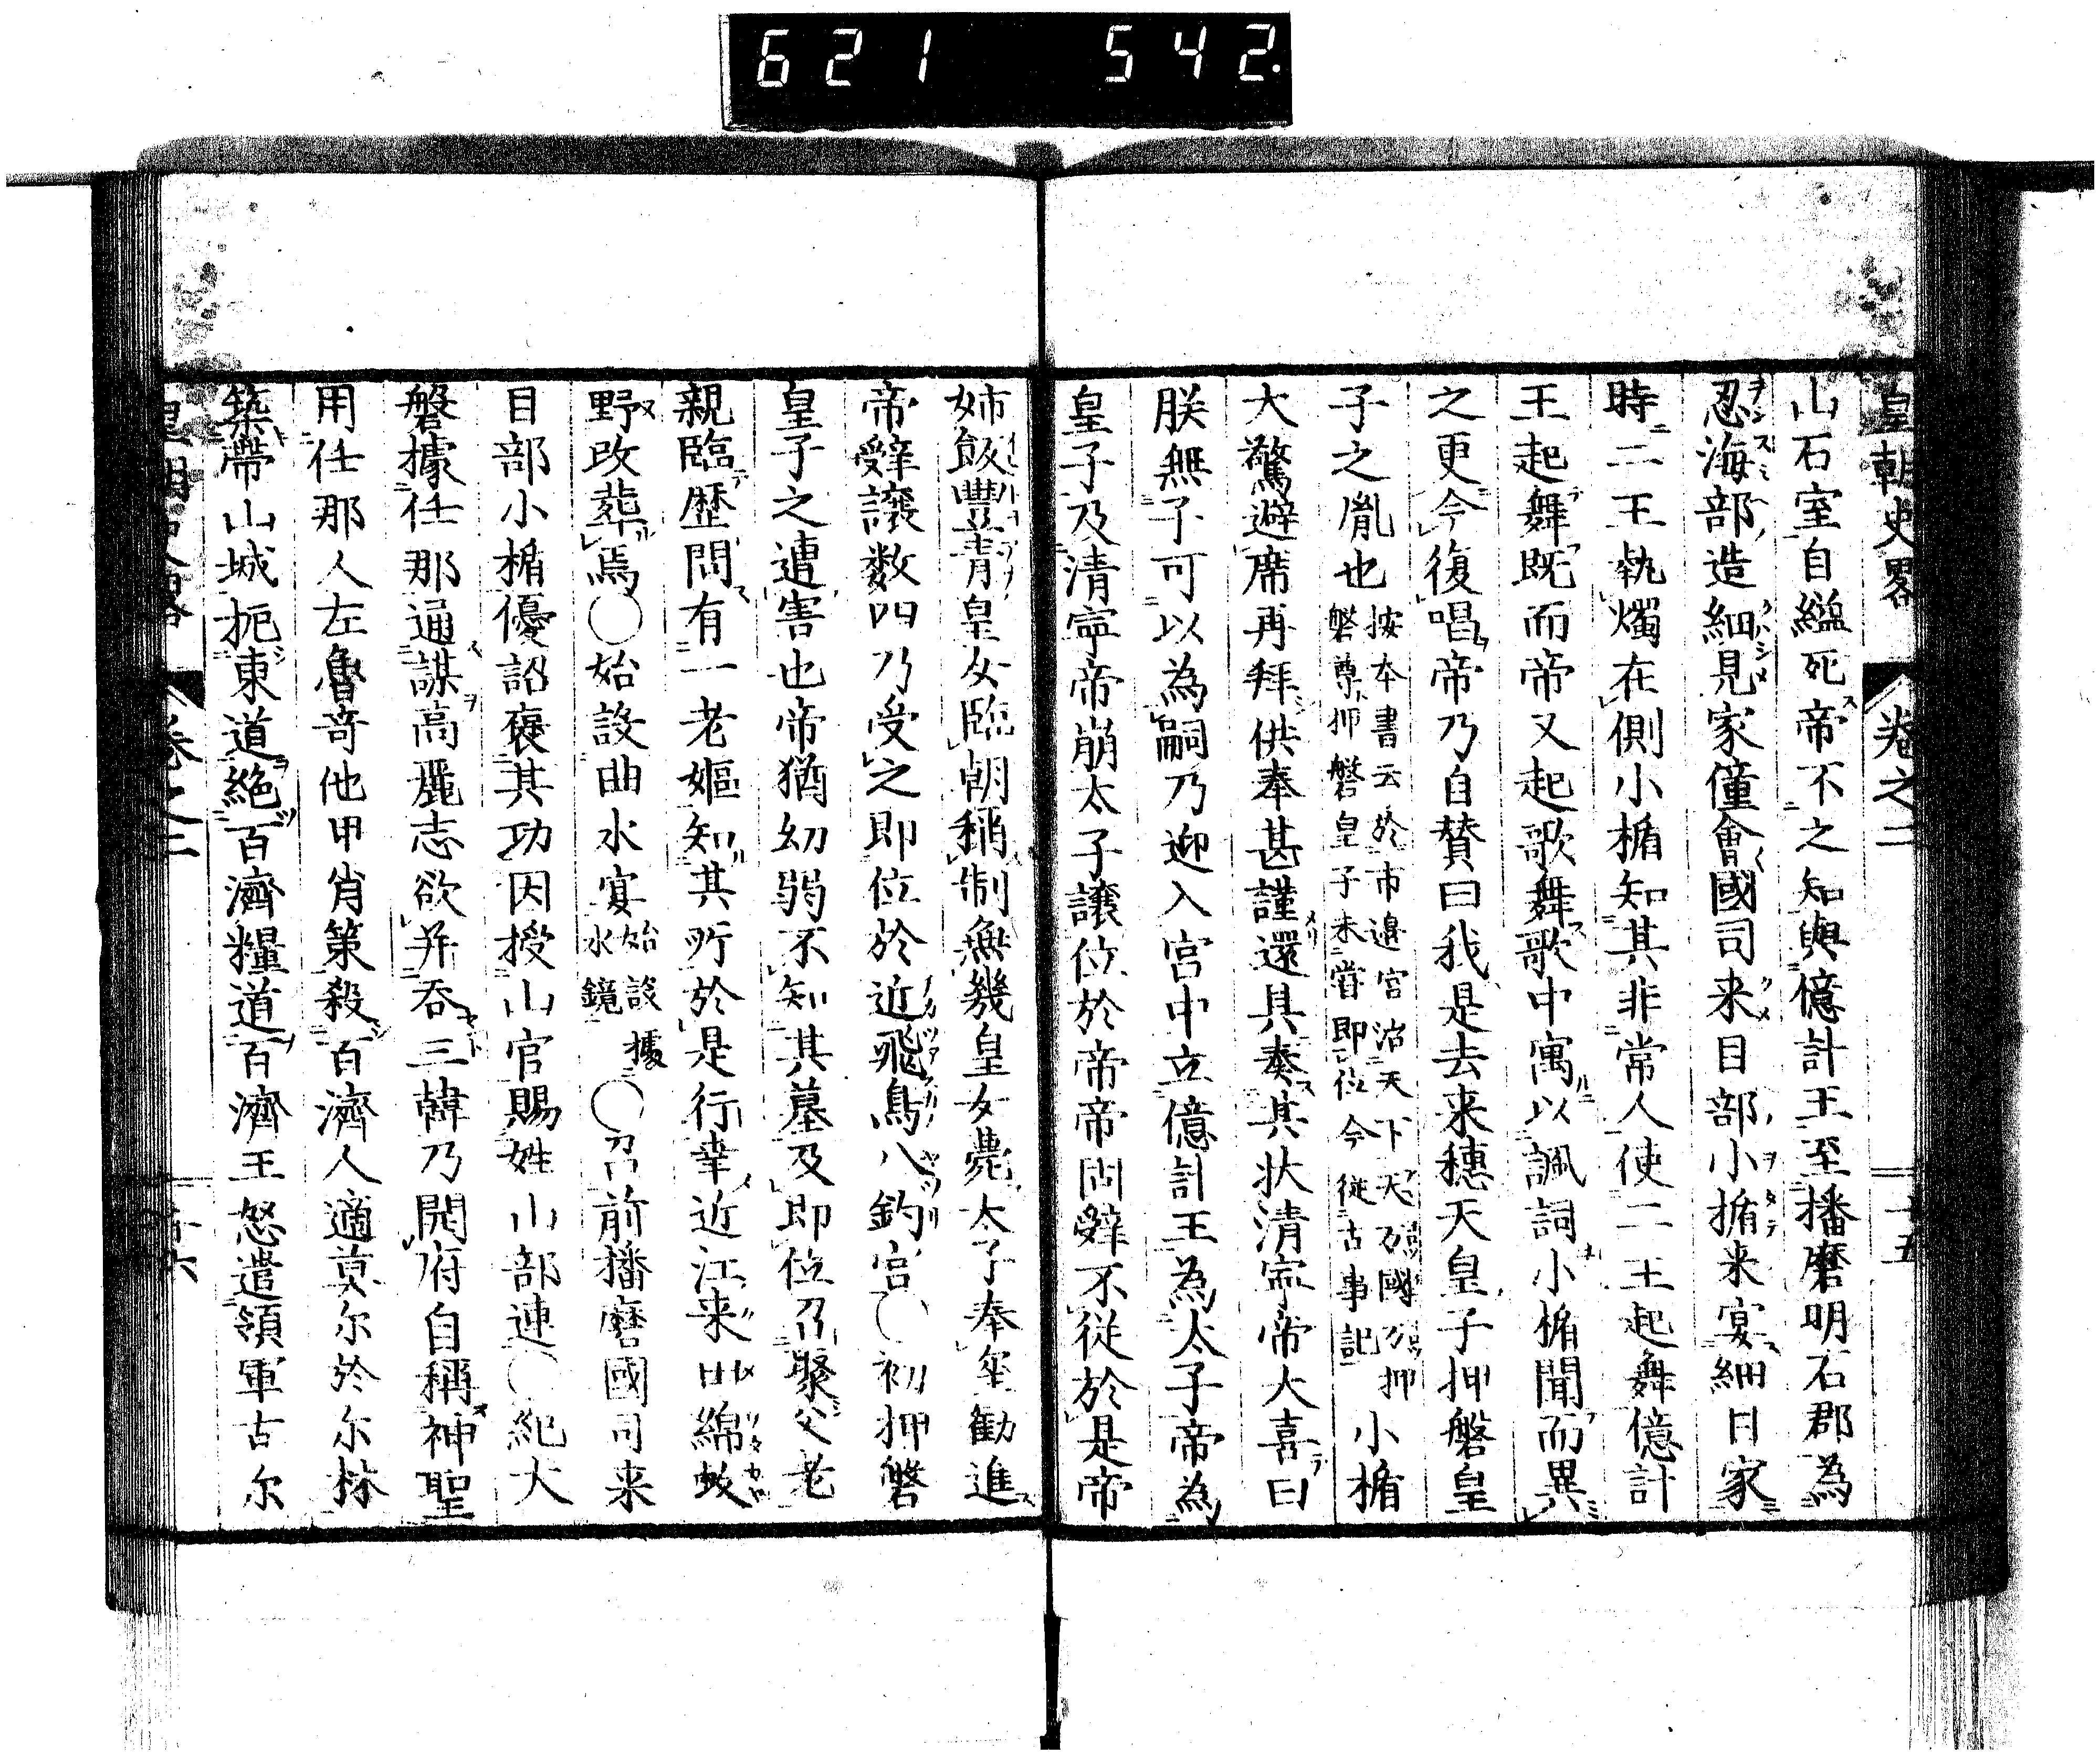 621 542.
皇朝史畧 卷之二 十五
山石室自縊死帝不之知與億計王至播磨明石郡為
忍海部造細見家僮會國司来目部小楯来宴細目家
時二王執燭在側小楯知其非常人使二王起舞億計
王起舞既而帝又起歌舞歌中寓以諷詞小楯聞而異
之更令復唱帝乃自賛曰我是去来穗天皇子押磐皇
子之胤也
按本書云於市邊宮治天下天万國万押
磐尊押磐皇子未嘗即位今従古事記
小楯
大驚避席再拜供奉甚謹還具奏其状清寧帝大喜曰
朕無子可以為嗣乃迎入宮中立億計王為太子帝為
皇子及清寧帝崩太子讓位於帝帝固辤不従於是帝
姉飯豐青皇女臨朝稱制無幾皇女薨太子奉璽勸進
帝辤讓数四乃受之即位於近飛鳥八釣宮○初押磐
皇子之遭害也帝猶幼弱不知其墓及即位召聚父老
親臨歴問有一老嫗知其所於是行幸近江来田綿蚊
野改葬焉○始設曲水宴
始設據
水鏡
○召前播磨國司来
目部小楯優詔褒其功因授山官賜姓山部連○紀大
磐據任那通謀高麗志欲并呑三韓乃開府自稱神聖
用任那人左魯奇他甲肖策殺百濟人適莫尔於尔林
築帶山城扼東道絶百濟糧道百濟王怒遣領軍古尔
卷之二